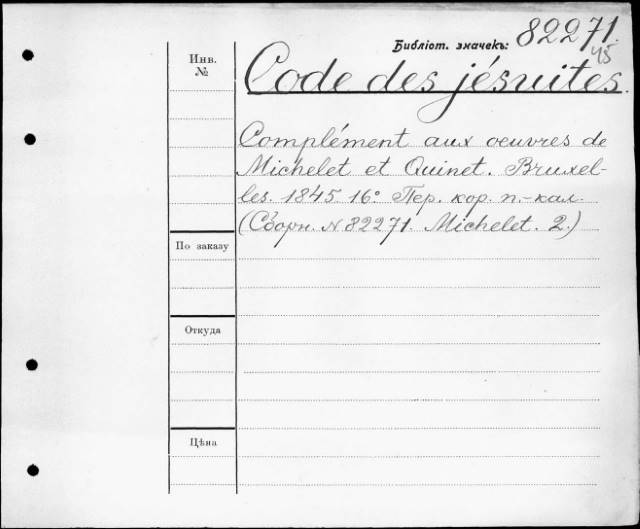 Библіот. значекъ: 82271.
45
Инв.
№
Code des jésuites.
Complément aux oeuvres de
Michelet et Quinet. Bruxel-
les. 1845. 16° Пер. кор. п.-кал.
(Сборн. N 82271. Michelet. 2.)
По заказу
Откуда
Цѣна